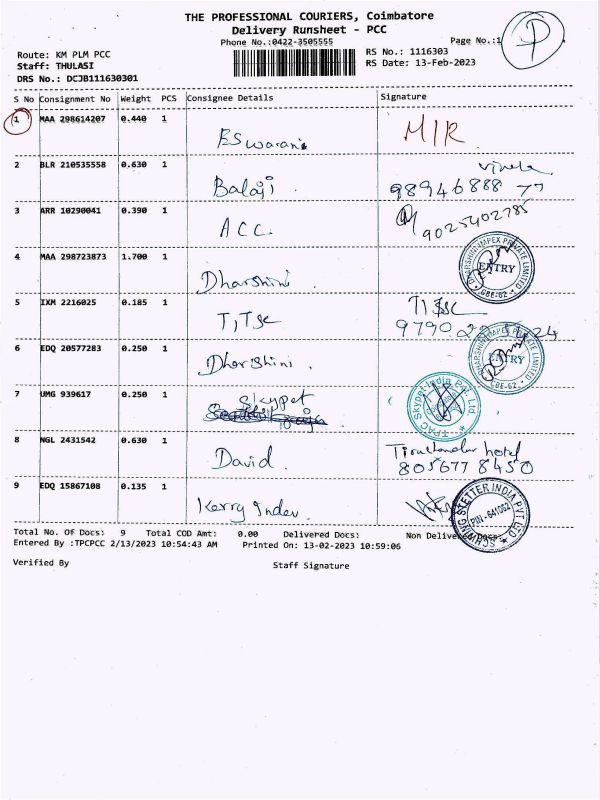 THE PROFESSIONAL COURIERS, Coimbatore
Delivery Runsheet - PCC
Phone No.:0422-3505555
Page No.:1
P
Route: KM PLM PCC
Staff: THULASI
DRS No.: DCJB111630301
RS No.: 1116303
RS Date: 13-Feb-2023
S No Consignment No Weight PCS Consignee Details Signature
1 MAA 298614207 0.440 1
ESwarani MIR
2 BLR 210535558 0.630 1
Balaji. 98946888 77
3 ARR 10290041 0.390 1
ACC. 9025402785
4 MAA 298723873 1.700 1
Dharshini
DHARSHINI IMPEX PRIVATE LIMITED
ENTRY
CBE-62
5 IXM 2216025 0.185 1
TITSC
9790
24
6 EDQ 20577283 0.250 1
Dharshini.
DHARSHINI IMPEX PRIVATE LIMITED
ENTRY
CBE-62
7 UMG 939617 0.250 1
Skypet
TPAC Skypet India Pvt. Ltd.
8 NGL 2431542 0.630 1
David.
hotel
805677 8450
9 EDQ 15867108 0.135 1
Kerry Indev
SCHWING STETTER INDIA PVT LTD
PIN - 641062
Total No. Of Docs: 9 Total COD Amt: 0.00 Delivered Docs: Non Delivered Docs:
Entered By :TPCPCC 2/13/2023 10:54:43 AM Printed On: 13-02-2023 10:59:06
Verified By Staff Signature